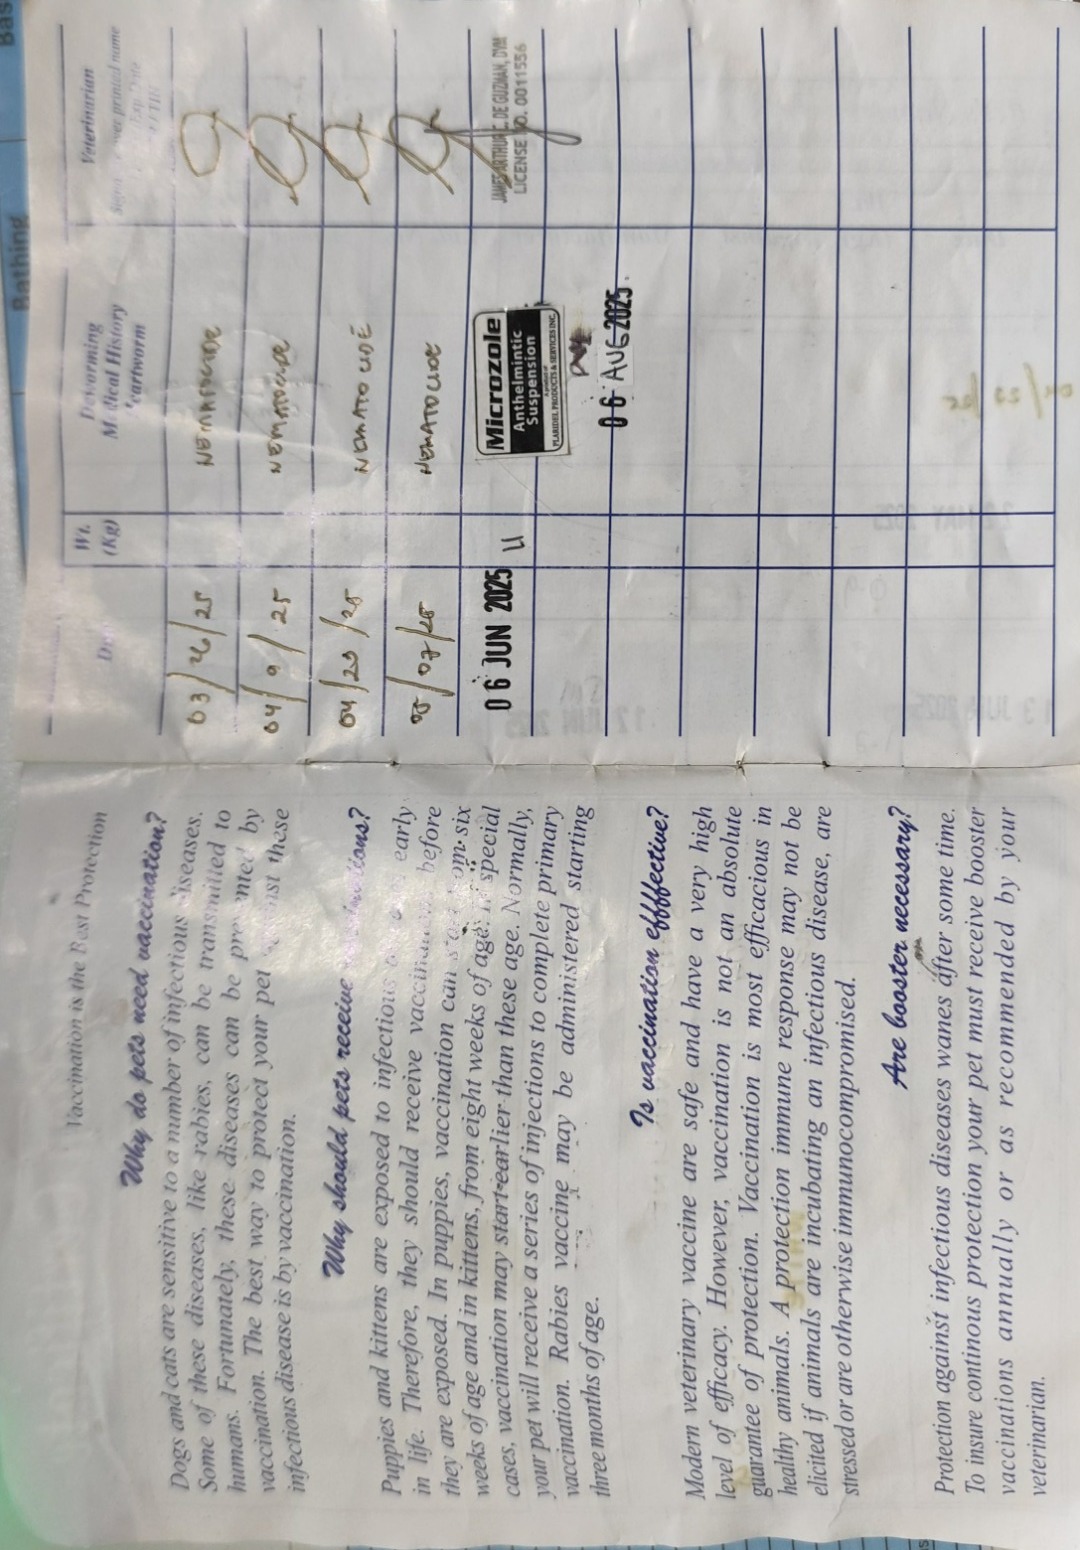 Vaccination is the Best Protection
Why do pets need vaccination?
Dogs and cats are sensitive to a number of infectious diseases.
Some of these diseases, like rabies, can be transmitted to
humans. Fortunately, these diseases can be by
vaccination. The best way to protect your pet these
infectious disease is by vaccination.
Why should pets receive
Puppies and kittens are exposed to infectious early
in life. Therefore, they should receive before
they are exposed. In puppies, vaccination can six
weeks of age and in kittens, from eight weeks of age. special
cases, vaccination may start earlier than these age. Normally,
your pet will receive a series of injections to complete primary
vaccination. Rabies vaccine may be administered starting
three months of age.
Is vaccination effffective?
Modern veterinary vaccine are safe and have a very high
level of efficacy. However, vaccination is not an absolute
guarantee of protection. Vaccination is most efficacious in
healthy animals. A protection immune response may not be
elicited if animals are incubating an infectious disease, are
stressed or are otherwise immunocompromised.
Are booster necessary?
Protection against infectious diseases wanes after some time.
To insure continous protection your pet must receive booster
vaccinations annually or as recommended by your
veterinarian.
Wt.
(Kg)
Deworming
Medical History
Heartworm
Veterinarian
over printed name
03/26/25 NEMATOCIDE
04/9/25 NEMATOCIDE
04/23/25 NEMATOCIDE
05/07/25 NEMATOCIDE
06 JUN 2025
Microzole
Anthelmintic
Suspension
PLARIDEL PRODUCTS & SERVICES INC.
C. DE GUZMAN, DVM
LICENSE NO. 0011556
06 AUG 2025
Bathing